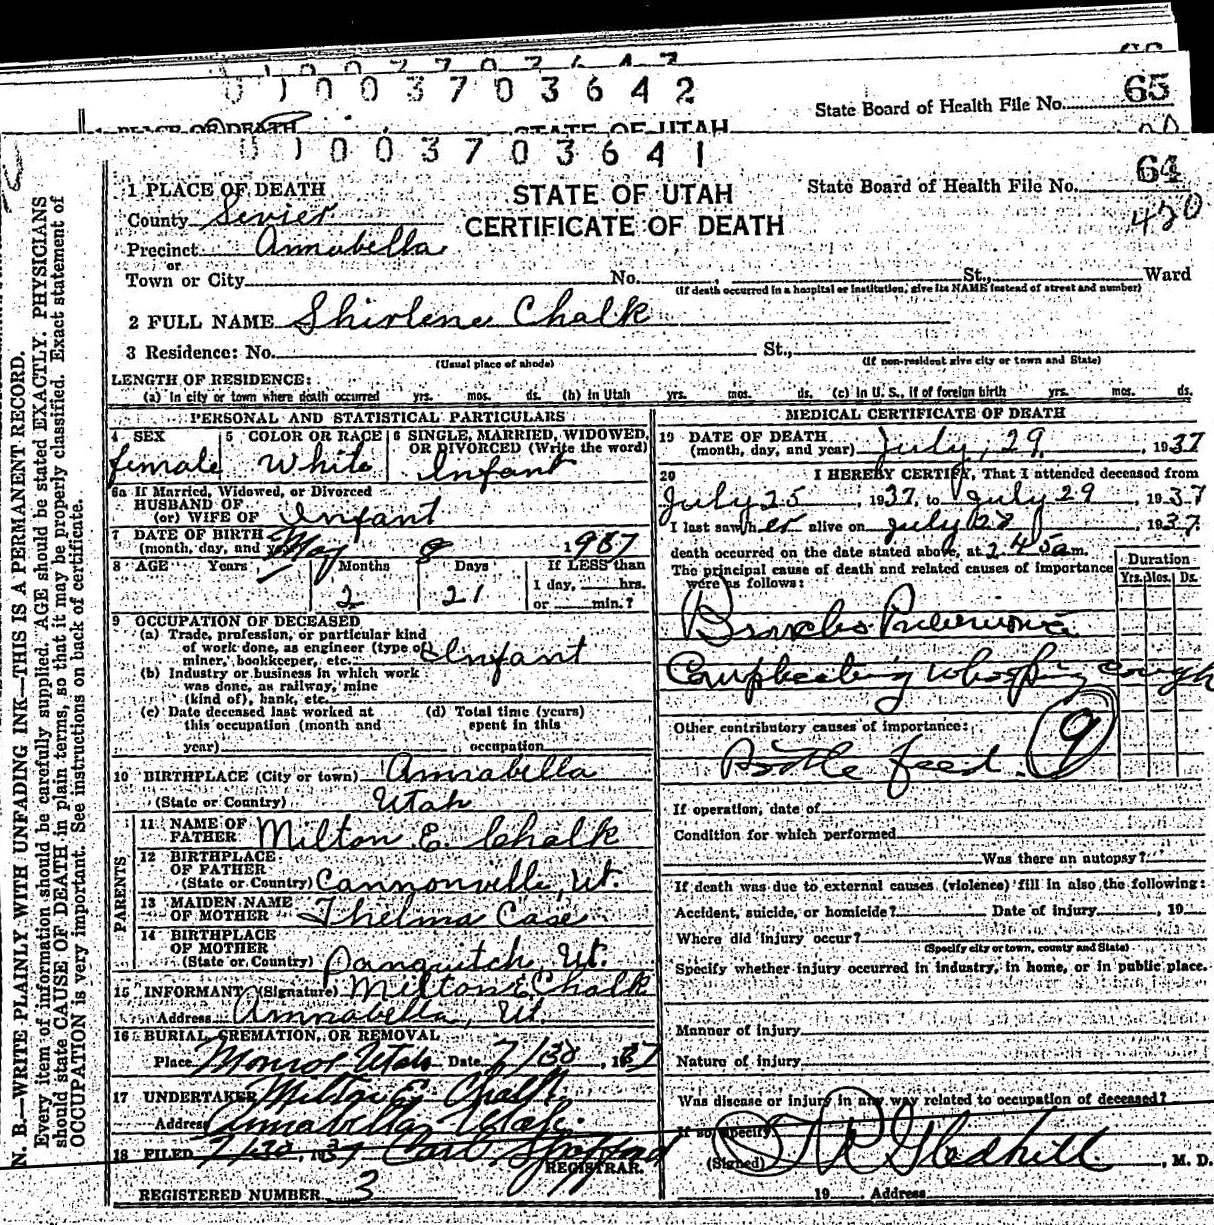 0 1 0 0 3 7 0 3 6 4 2
State Board of Health File No. 65
1 PLACE OF DEATH STATE OF UTAH
0 1 0 0 3 7 0 3 6 4 1
64
1 PLACE OF DEATH STATE OF UTAH State Board of Health File No.
County Sevier CERTIFICATE OF DEATH 420
Precinct Annabella
or
Town or City No. St., Ward
(If death occurred in a hospital or institution, give its NAME instead of street and number)
2 FULL NAME Shirlene Chalk
3 Residence: No. St.,
(Usual place of abode) (If non-resident give city or town and State)
LENGTH OF RESIDENCE:
(a) In city or town where death occurred yrs. mos. ds. (b) In Utah yrs. mos. ds. (c) in U. S., if of foreign birth yrs. mos. ds.
PERSONAL AND STATISTICAL PARTICULARS
4 SEX 5 COLOR OR RACE 6 SINGLE, MARRIED, WIDOWED,
OR DIVORCED (Write the word)
female White Infant
6a If Married, Widowed, or Divorced
HUSBAND OF
(or) WIFE OF Infant
7 DATE OF BIRTH
(month, day, and year) May 8 1937
8 AGE Years Months Days If LESS than
1 day, hrs.
2 21 or min.?
9 OCCUPATION OF DECEASED
(a) Trade, profession, or particular kind
of work done, as engineer (type of
miner, bookkeeper, etc. Infant
(b) Industry or business in which work
was done, as railway, mine
(kind of), bank, etc.
(c) Date deceased last worked at (d) Total time (years)
this occupation (month and spent in this
year) occupation
10 BIRTHPLACE (City or town) Annabella
(State or Country) Utah
PARENTS
11 NAME OF
FATHER Milton E. Chalk
12 BIRTHPLACE
OF FATHER
(State or Country) Cannonville, Ut.
13 MAIDEN NAME
OF MOTHER Thelma Case
14 BIRTHPLACE
OF MOTHER
(State or Country) Panguitch Ut.
15 INFORMANT (Signature) Milton E Chalk
Address Annabella, Ut.
16 BURIAL, CREMATION, OR REMOVAL
Place Monroe Utah Date 7/30, 1937
17 UNDERTAKER Milton E. Chalk
Address Annabella Utah.
18 FILED 7/30, 1937 Carl Spafford
REGISTRAR.
REGISTERED NUMBER 3
MEDICAL CERTIFICATE OF DEATH
19 DATE OF DEATH
(month, day, and year) July, 29, 1937
20 I HEREBY CERTIFY, That I attended deceased from
July 25, 1937, to July 29, 1937
I last saw her alive on July 28, 1937
death occurred on the date stated above, at 2.45 a m.
The principal cause of death and related causes of importance
were as follows:
Duration
Yrs. Mos. Ds.
Broncho Pneumonia
Complicating whooping cough
Other contributory causes of importance:
Bottle feed. 9
If operation, date of
Condition for which performed
Was there an autopsy?
If death was due to external causes (violence) fill in also the following:
Accident, suicide, or homicide? Date of injury, 19
Where did injury occur?
(Specify city or town, county and State)
Specify whether injury occurred in industry, in home, or in public place.
Manner of injury
Nature of injury
Was disease or injury in any way related to occupation of deceased?
If so, specify
(Signed) T R Gledhill, M. D.
19 Address
N. B.—WRITE PLAINLY WITH UNFADING INK—THIS IS A PERMANENT RECORD.
Every item of information should be carefully supplied. AGE should be stated EXACTLY. PHYSICIANS
should state CAUSE OF DEATH in plain terms, so that it may be properly classified. Exact statement of
OCCUPATION is very important. See instructions on back of certificate.